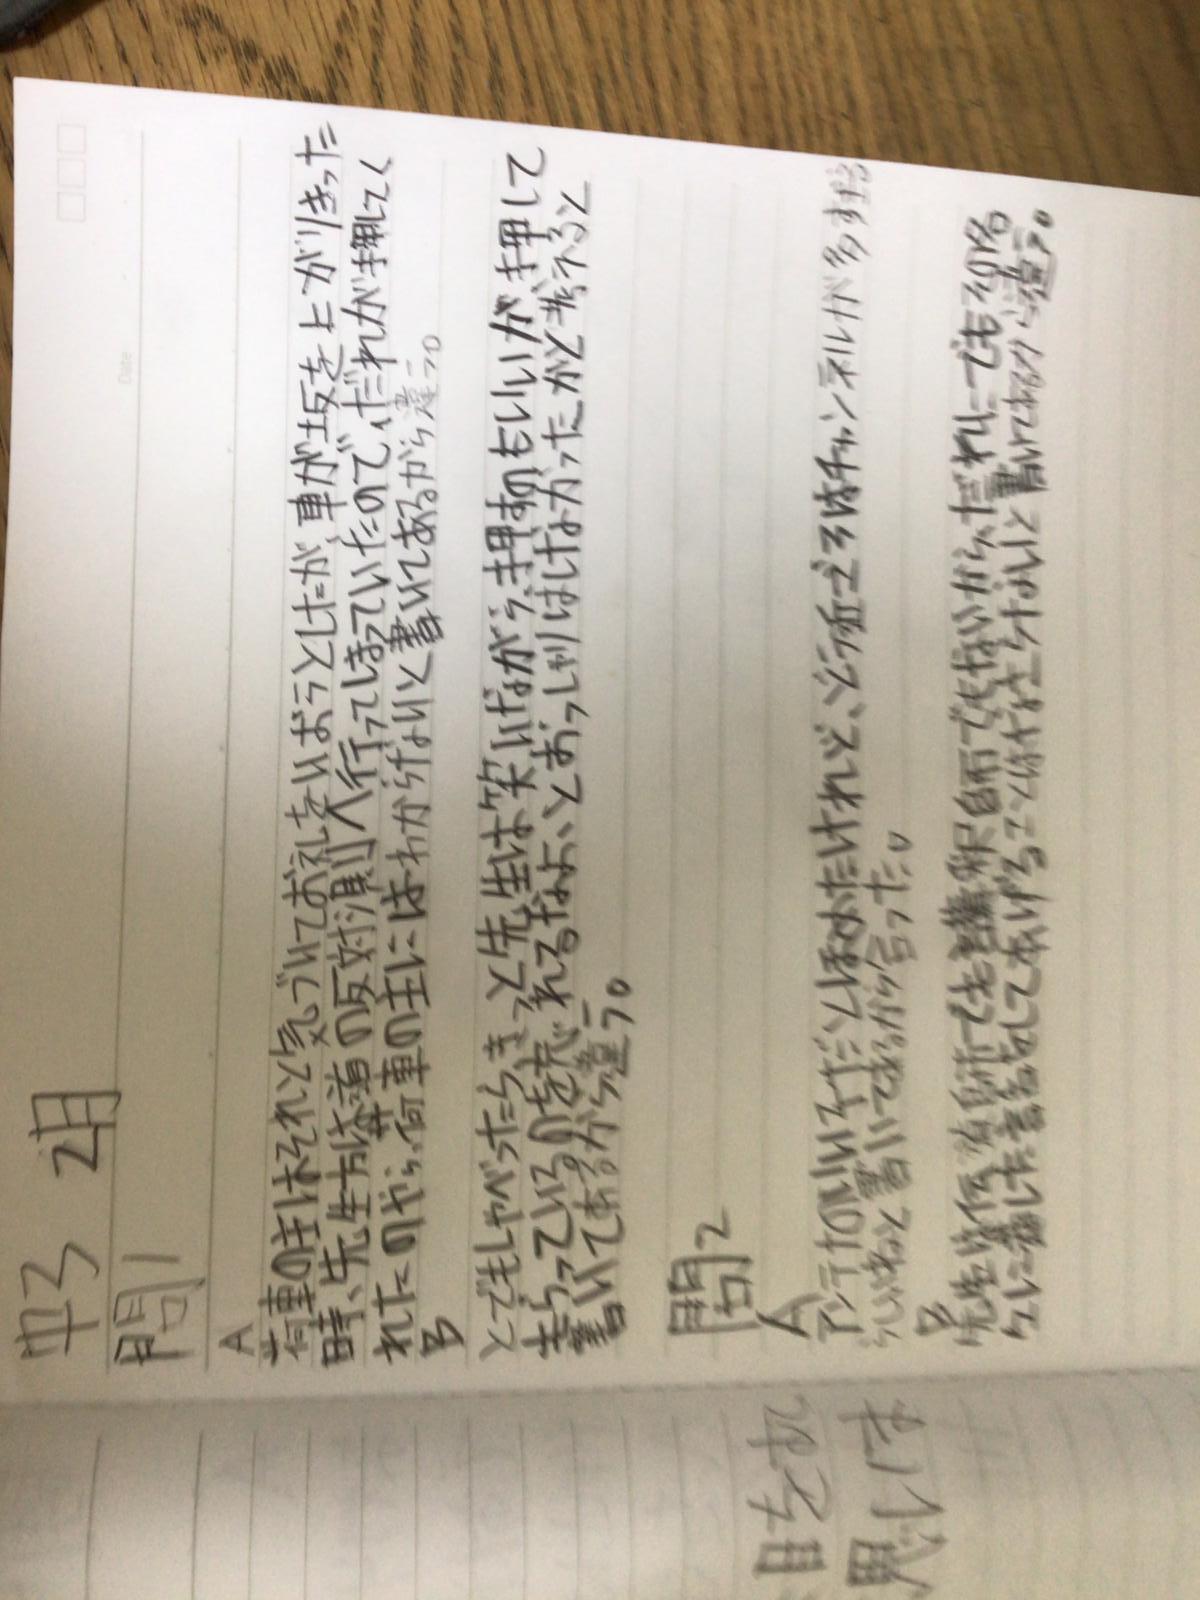 問1
A
荷車の主はそれと気づいてお礼をいおうとしたが、車が坂を上がりきった
時、先生方は道の反対側へ行ってしまっていたので、だれが押してく
れたのやら、荷車の主にはわからないと書いてあるから違う。
B
とでもしゃべったらきっと先生は笑いながら、押すのもいいが押して
もらっているのを忘れるなよ、とおっしゃりはしなかったかと考えると
書いてあるから違う。
問2
A
アンテナの高い子だとほめたけれど、近ごろはチャンネルが多すぎる
らしいねと書いてあるから合った。
B
先生は伝治郎でも 釈自而でもないから、だれにでもその名
を書 してあげることはできないと書いてあるから違う。
Date
目をは
感じは